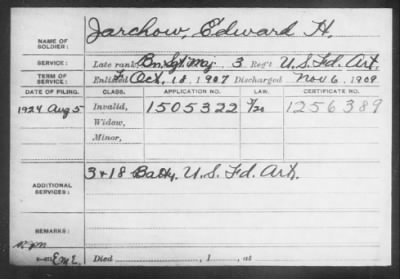 NAME OF SOLDIER: Jarchow, Edward H.
SERVICE: Late rank, Bn. Sgt. Maj. 3 Reg't U.S. Fd. Art.
TERM OF SERVICE: Enlisted Oct. 18, 1907 Discharged Nov 6, 1909
DATE OF FILING. CLASS. APPLICATION NO. LAW. CERTIFICATE NO.
1924 Aug 5 Invalid, 1505322 1256389
Widow,
Minor,
ADDITIONAL SERVICES: 3 & 18 Batty. U.S. Fd. Art.
REMARKS:
E.M.E. Died , 1 , at